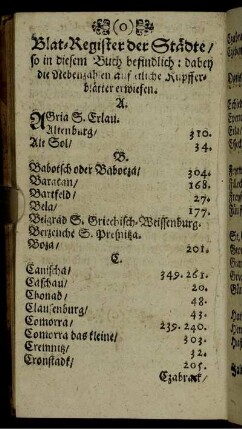 (o)
Blat-Register der Städte/
so in diesem Buch befindlich: dabey
die Nebenzahlen auf etliche Kupffer-
blätter erweisen.
A.
AGria S. Erlau.
Altenburg/ 310.
Alt Sol/ 34.
B.
Babotsch oder Baboeza/ 304.
Baracan/ 168.
Bartfeld/ 27.
Bela/ 177.
Belgrad S. Griechisch-Weissenburg.
Berzenche S. Presnitza.
Boza/ 201.
C.
Canischa/ 349. 261.
Caschau/ 20.
Chonad/ 48.
Clausenburg/ 43.
Comorra/ 239. 240.
Comorra das kleine/ 303.
Cremnitz/ 32.
Cronstadt/ 205.
Czabrack/